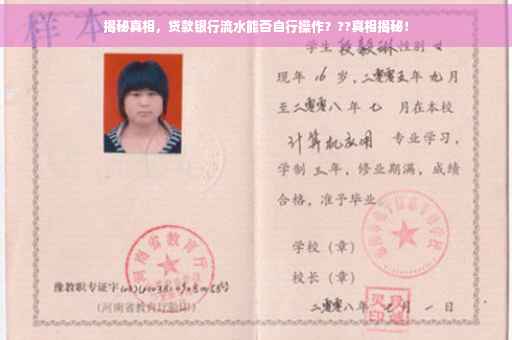 揭秘真相，贷款银行流水能否自行操作？??真相揭秘！
样本
学生段毅琳性别女
现年16岁，二零零五年九月
至二零零八年七月在本校
计算机应用 专业学习，
学制三年，修业期满，成绩
合格，准予毕业
学校（章）
校长（章）
二零零八年 月一日
河南省教育厅
豫教职专证字
(河南省教育厅验印)